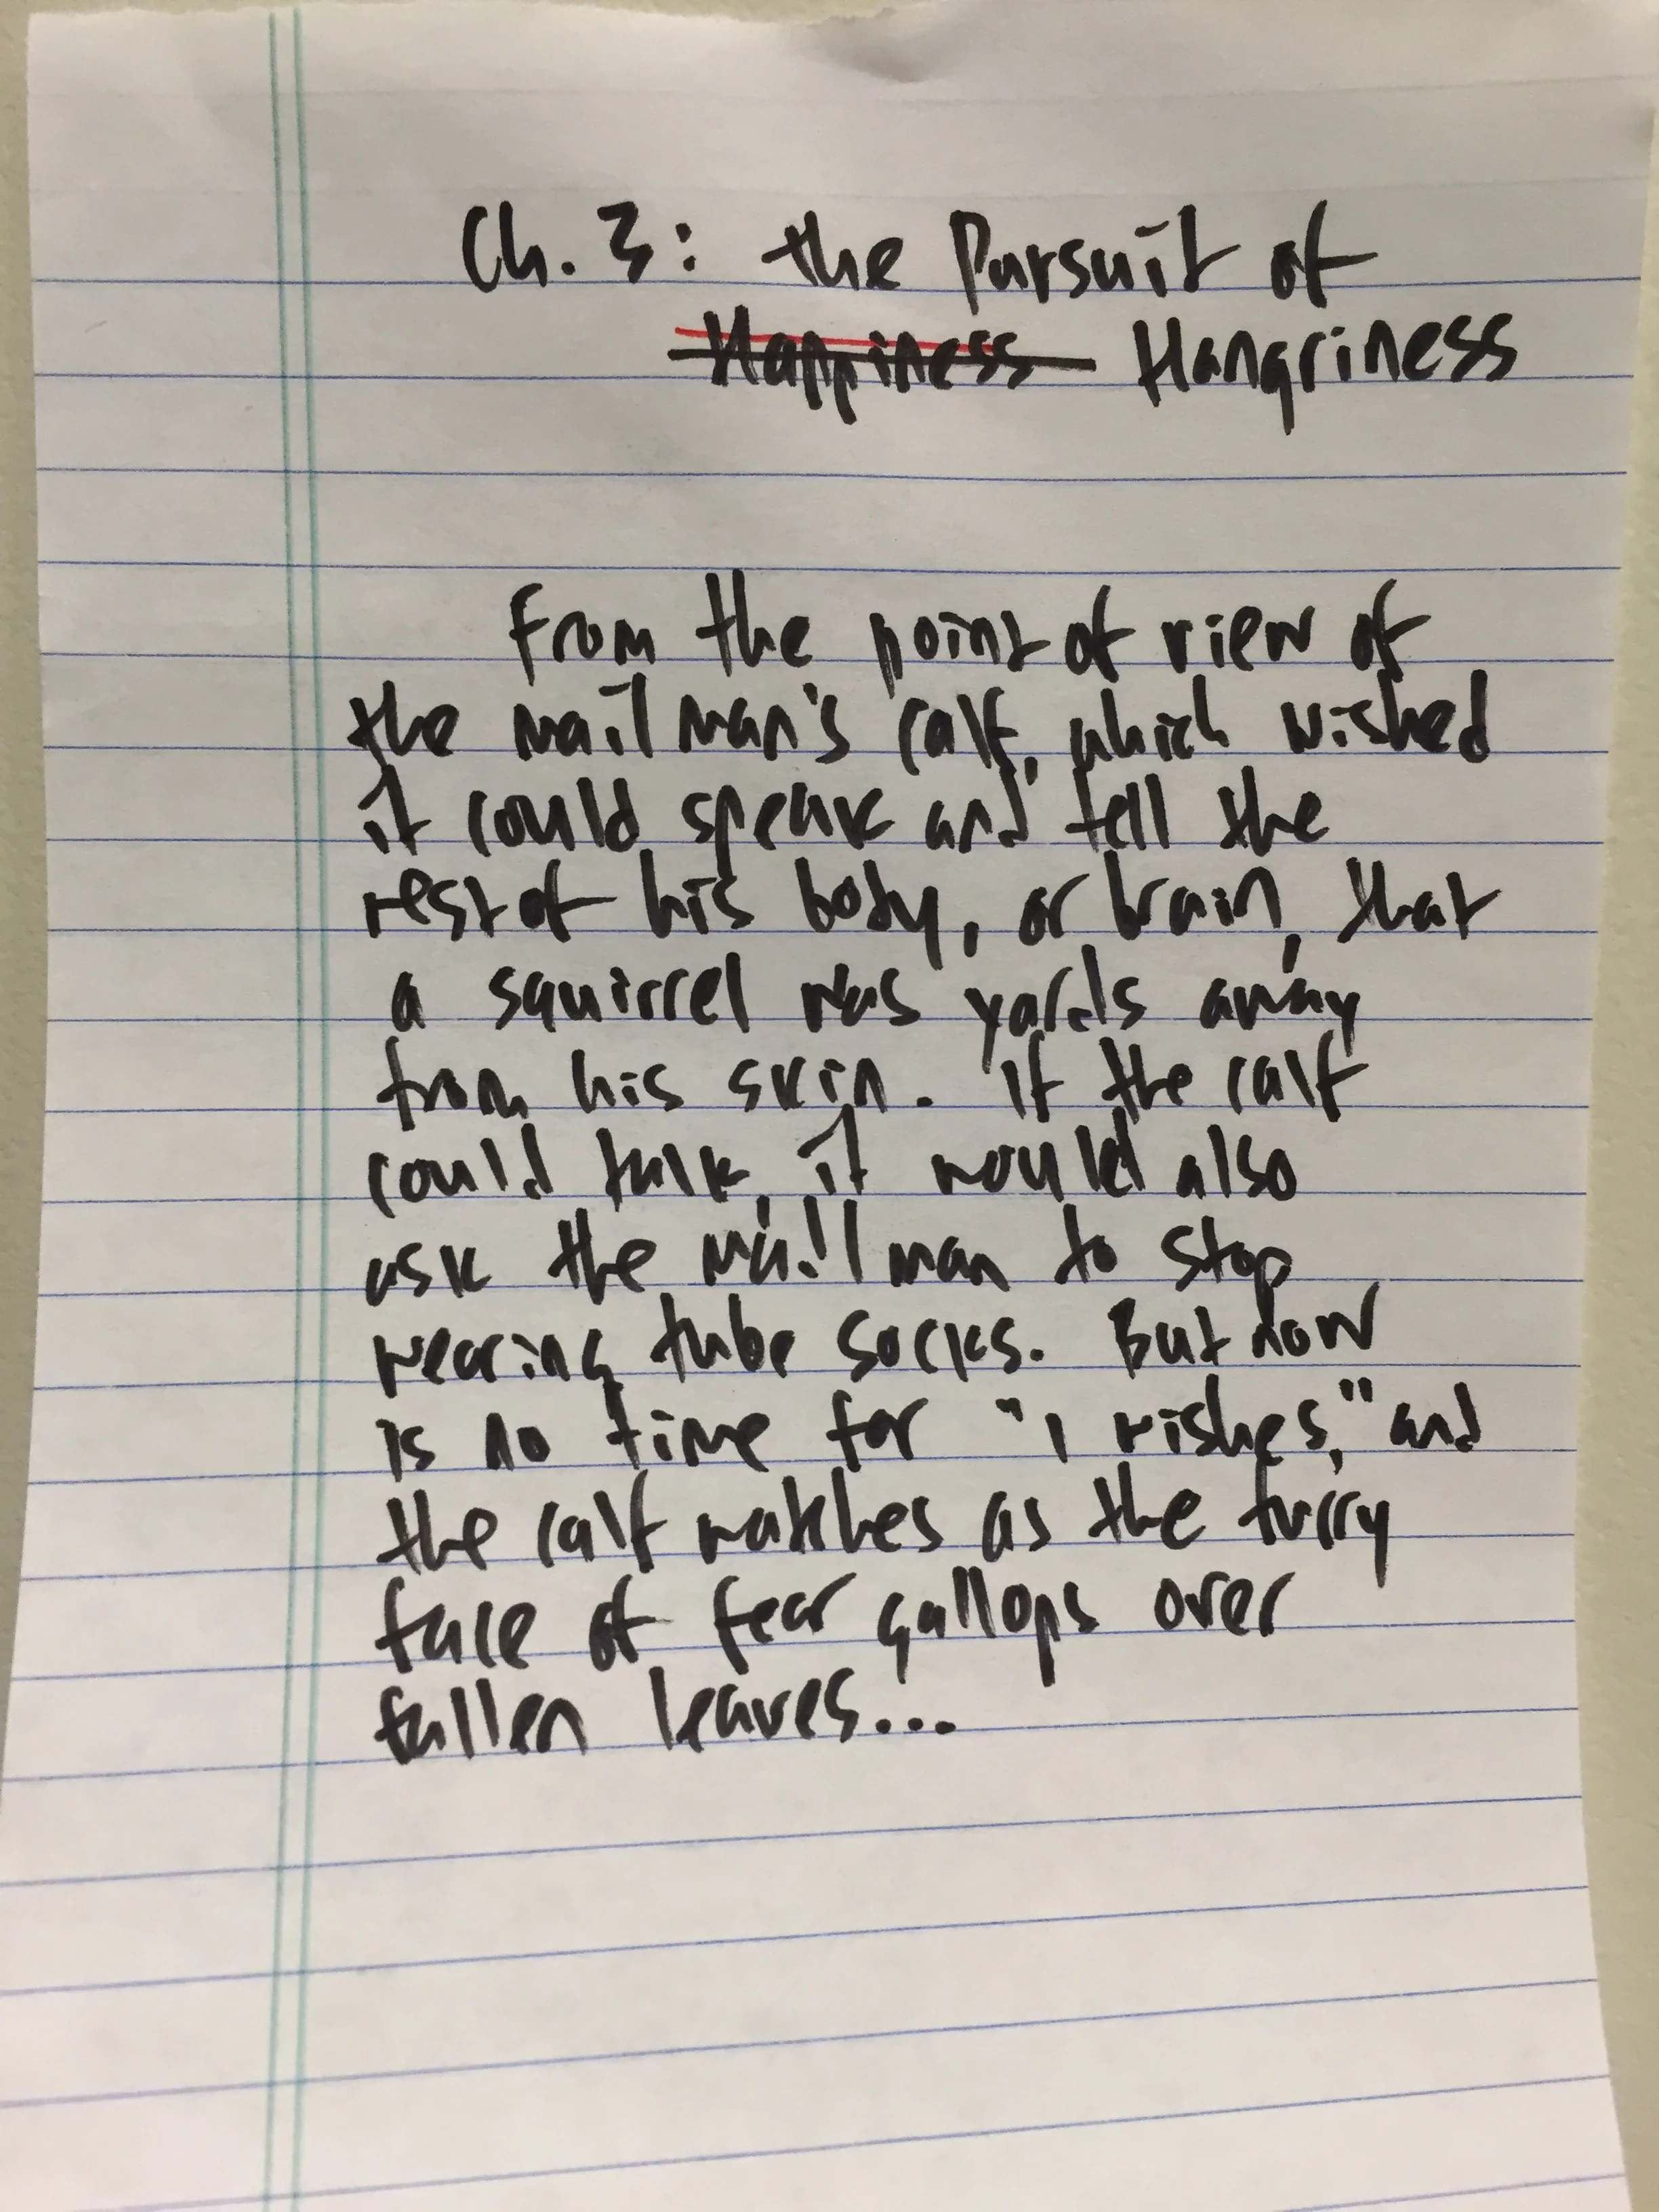 Ch. 3: the Pursuit of
Happiness Hangriness
From the point of view of
the mailman's calf, which wished
it could speak and tell the
rest of his body, or brain, that
a squirrel was yards away
from his skin. If the calf
could talk, it would also
ask the mailman to stop
wearing tube socks. But now
is no time for "I wishes," and
the calf watches as the furry
face of fear gallops over
fallen leaves...